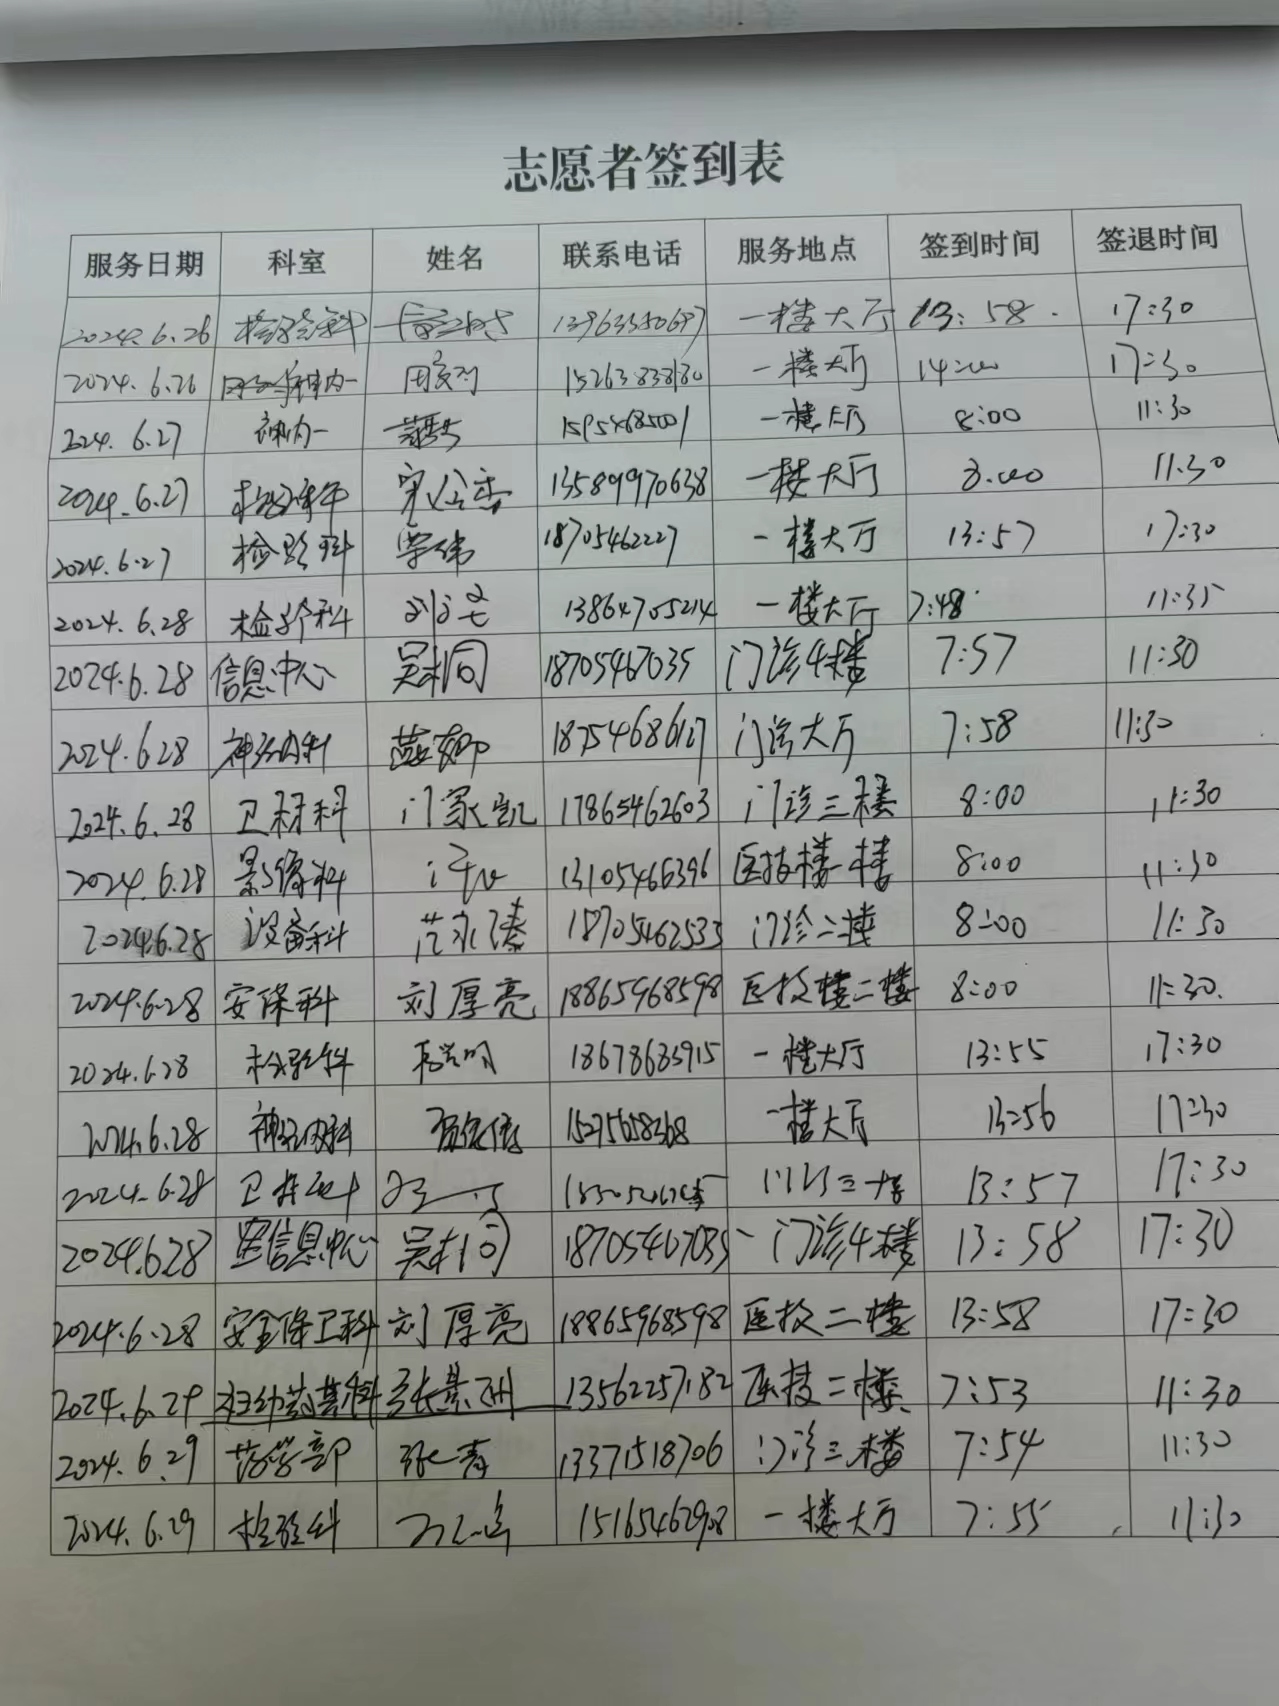 志愿者签到表
服务日期 科室 姓名 联系电话 服务地点 签到时间 签退时间
2024.6.26 检验科 一楼大厅 13:58 17:30
2024.6.26 一楼大厅 14:00 17:30
2024.6.27 神内一 一楼大厅 8:00 11:30
2024.6.27 检验科 13589970638 一楼大厅 8:00 11:30
2024.6.27 检验科 18705462227 一楼大厅 13:57 17:30
2024.6.28 检验科 13864705214 一楼大厅 7:48 11:35
2024.6.28 信息中心 吴桐 18705467035 门诊4楼 7:57 11:30
2024.6.28 神经内科 18754686127 门诊大厅 7:58 11:30
2024.6.28 卫材科 门家凯 17865462603 门诊三楼 8:00 11:30
2024.6.28 影像科 13105466396 医技楼一楼 8:00 11:30
2024.6.28 设备科 范永臻 18705462533 门诊二楼 8:00 11:30
2024.6.28 安保科 刘厚亮 18865968598 医技楼二楼 8:00 11:30
2024.6.28 检验科 18678635915 一楼大厅 13:55 17:30
2024.6.28 神经内科 15275658368 一楼大厅 13:56 17:30
2024.6.28 13:57 17:30
2024.6.28 信息中心 吴桐 18705467035 门诊4楼 13:58 17:30
2024.6.28 安全保卫科 刘厚亮 18865968598 医技二楼 13:58 17:30
2024.6.29 13562257182 医技二楼 7:53 11:30
2024.6.29 药学部 张青 13371518706 门诊三楼 7:54 11:30
2024.6.29 检验科 15165462908 一楼大厅 7:55 11:30